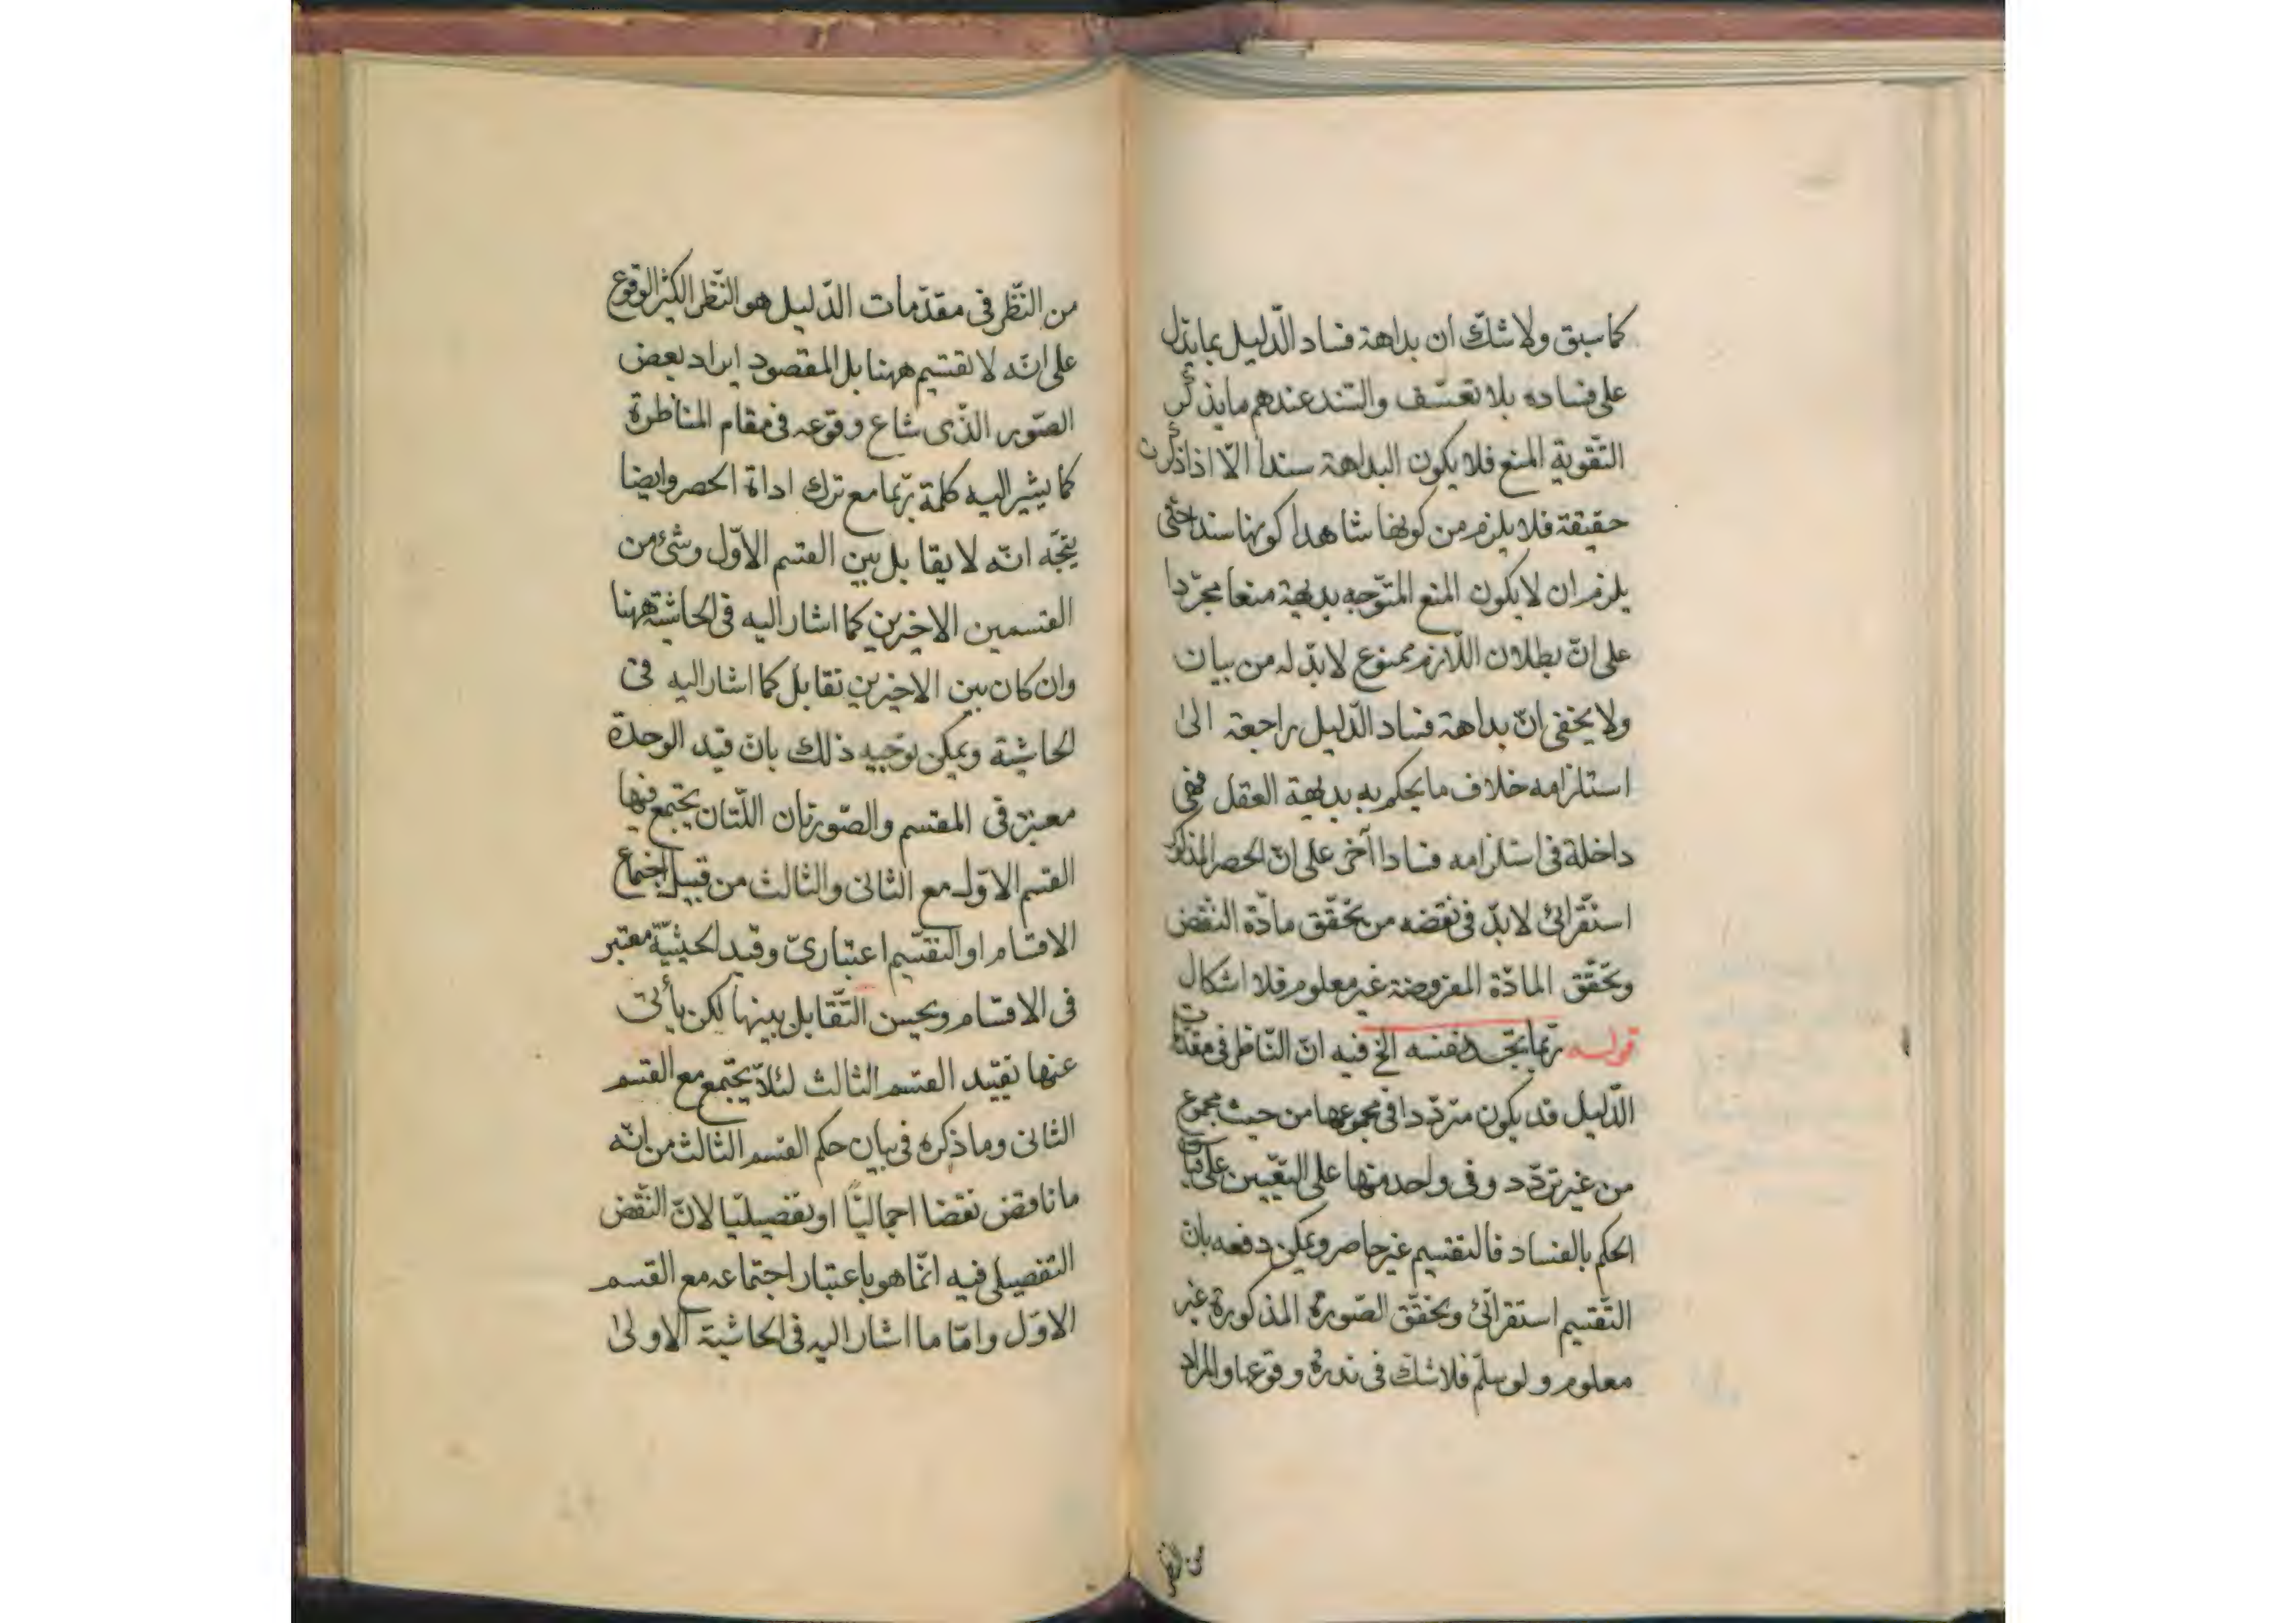 كما سبق ولا شكّ ان بداهة فساد الدّليل بما يدّل
على فساده بلا تعسّف والسّند عندهم ما يذكر
التّقوية المنع فلا يكون البداهة سندا الّا اذا ذكرت
حقيقة فلا يلزم من كونها شاهدا كونها سندا حتّى
يلزم ان لا يكون المنع المتوّجه بديهة منعا مجرّدا
على انّ بطلان اللّازم ممنوع لابدّ له من بيان
ولا يخفى انّ بداهة فساد الدّليل راجعة الى
استلزامه خلاف ما يحكم به بديهة العقل فهى
داخلة فى استلزامه فسادا آخر على انّ الحصر المذكور
استقرائى لابدّ فى نقضه من تحقّق مادّة النّقض
وتحقّق المادّة المفروضة غير معلوم فلا اشكال
قوله ربّما يتّحد نفسه الخ فيه انّ النّاظر فى مقدّمات
الدّليل قد يكون متردّدا فى مجموعها من حيث مجموع
من غير تردّد وفى واحد منها على التّعيين على
الحكم بالفساد فالتقسيم غير حاصر ويمكن دفعه بان
التّقسيم استقرائى وتحقّق الصّورة المذكورة غير
معلوم ولو سلّم فلا شكّ فى ندرة وقوعها والمراد
من النظر
من النّظر فى مقدّمات الدّليل هو النّظر الكثير الوقوع
على انّه لا تقسيم ههنا بل المقصود ايراد بعض
الصّور الذّى شاع وقوعه فى مقام المناظرة
كما يشير اليه كلمة ربّما مع ترك اداة الحصر وايضا
يتجّه انّه لا يقابل بين القسم الاوّل وشئ من
القسمين الاخيرين كما اشار اليه فى الحاشية ههنا
وان كان بين الاخيرين تقابل كما اشار اليه فى
الحاشية ويمكن توجيه ذلك بان قيد الوحدة
معتبر فى المقسم والصّورتان اللّتان يجتمع فيها
القسم الاوّل مع الثانى والثالث من قبيل اجتماع
الاقسام او التّقسيم اعتبارىّ وقيد الحيثيّة معتبر
فى الاقسام ويحسن التّقابل بينها لكن يأبى
عنها تقييد القسم الثالث لئلّا يجتمع مع القسم
الثانى وما ذكره فى بيان حكم القسم الثالث من انّه
ما ناقض نقضا اجماليّا او تفصيليّا لانّ النّقض
التّفصيلى فيه انّما هو باعتبار اجتماعه مع القسم
الاوّل وامّا ما اشار اليه فى الحاشية الاولى